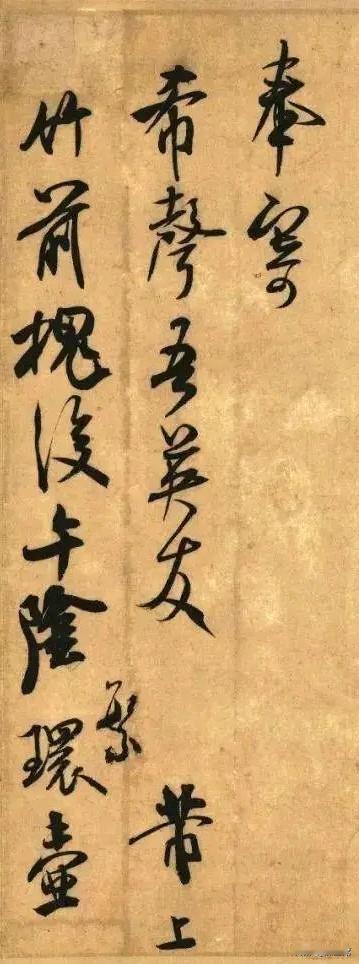 奉寄
希聲吾英友 芾上
竹前槐後午陰繁環壺